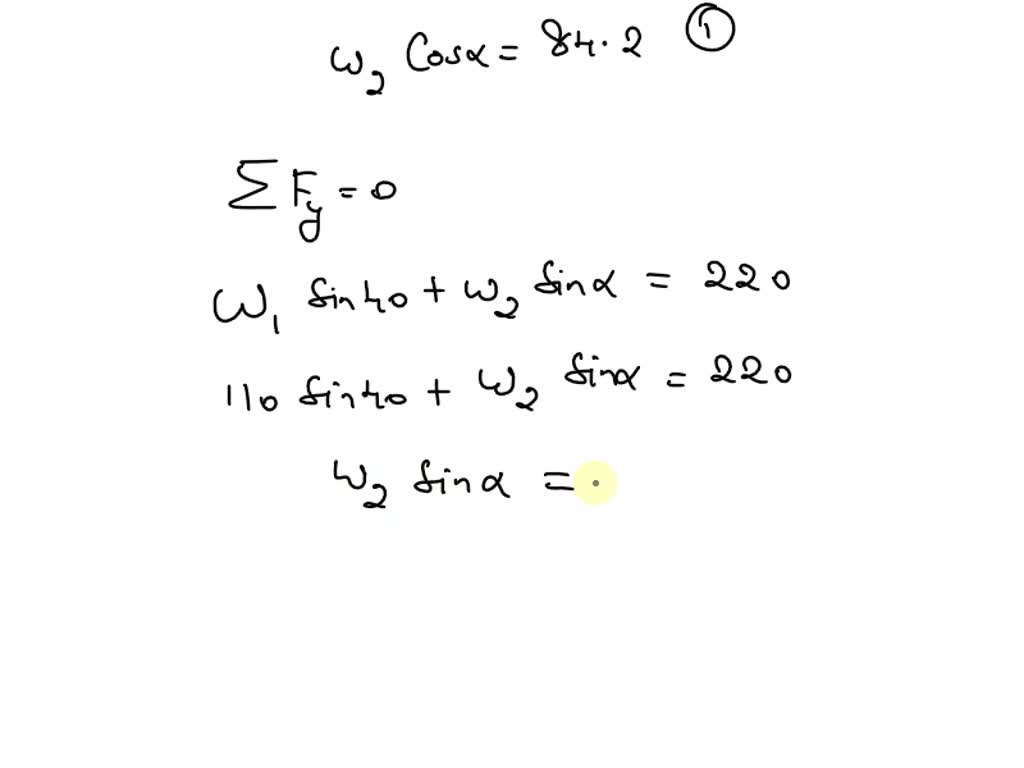 ω₂ cosα = 84.2 ①
Σ Fy = 0
ω₁ sin40 + ω₂ sinα = 220
110 sin40 + ω₂ sinα = 220
ω₂ sinα =